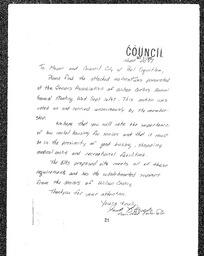 COUNCIL
To Mayor and Council City of Port Coquitlam,
Please find the attached motion presented
at the Seniors Association of Wilson Centre Annual
General Meeting Wed Sept. This motion was
voted on and received unanimously by the member-
ship.
We hope that you will note the importance
of low rental housing for seniors and that it must
be in the proximity of good busing, shopping
medical and recreational facilities.
The Kitty proposed site meets all of these
requirements and has the wholehearted support
from the Seniors of Wilson Centre.
Thank you for your attention.
Yours truly,
21